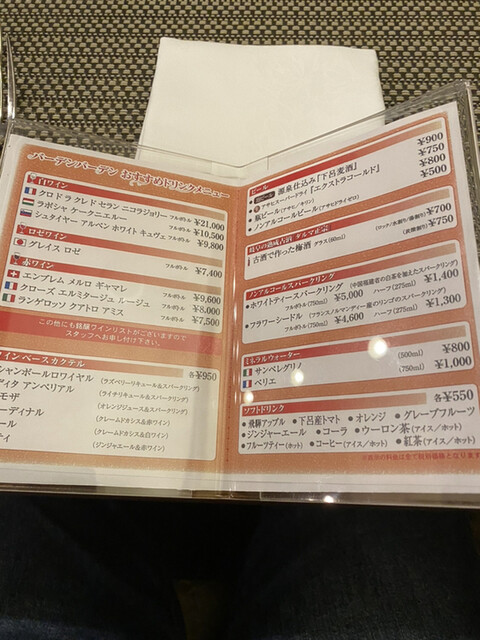 バーデンバーデン おすすめドリンクメニュー
白ワイン
クロ ラ クレド セラン ニコラジョリー フルボトル ¥21,000
ラポシャ ケークニエルー フルボトル ¥10,500
シュタイヤー アルペン ホワイト キュヴェ フルボトル ¥9,800
ロゼワイン
グレイス ロゼ フルボトル ¥7,400
赤ワイン
エンブレム メルロ ギャマレ フルボトル ¥9,600
クローズ エルミタージュ ルージュ フルボトル ¥8,000
ランゲロッソ クアトロ アミス フルボトル ¥7,500
この他にも銘醸ワインリストがございますので
スタッフへお申し付け下さい。
ワインベースカクテル 各¥950
シャンボールロワイヤル (ラズベリーリキュール&スパークリング)
ディタ アンペリアル (ライチリキュール&スパークリング)
モザ (オレンジジュース&スパークリング)
ーディナル (クレームドカシス&赤ワイン)
ール (クレームドカシス&白ワイン)
ティ (ジンジャエール&赤ワイン)
ビール
源泉仕込み「下呂麦酒」 ¥900
アサヒスーパードライ「エクストラコールド」 ¥750
瓶ビール(アサヒ/キリン) ¥800
ノンアルコールビール(アサヒドライゼロ) ¥500
岐阜の熟成古酒 ダルマ正宗
古酒で作った梅酒 グラス(60ml) (ロック/水割り/湯割り) ¥700
(炭酸割り) ¥750
ノンアルコールスパークリング
•ホワイトティースパークリング (中国福建省の白茶を加えたスパークリング)
フルボトル(750ml) ¥5,000 ハーフ(275ml) ¥1,400
•フラワーシードル (フランスノルマンディー産のリンゴのスパークリング)
フルボトル(750ml) ¥4,600 ハーフ(275ml) ¥1,300
ミネラルウォーター
サンペレグリノ (500ml) ¥800
ペリエ (750ml) ¥1,000
ソフトドリンク 各¥550
•飛騨アップル •下呂産トマト •オレンジ •グレープフルーツ
•ジンジャーエール •コーラ •ウーロン茶(アイス/ホット)
•フルーツティー(ホット) •コーヒー(アイス/ホット) •紅茶(アイス/ホット)
※表示の料金は全て税別価格となります